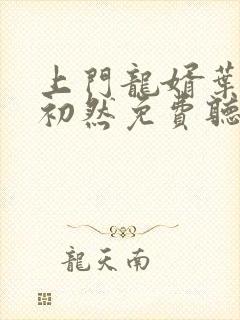 上門龍婿葉
初然免費聽
龍天南